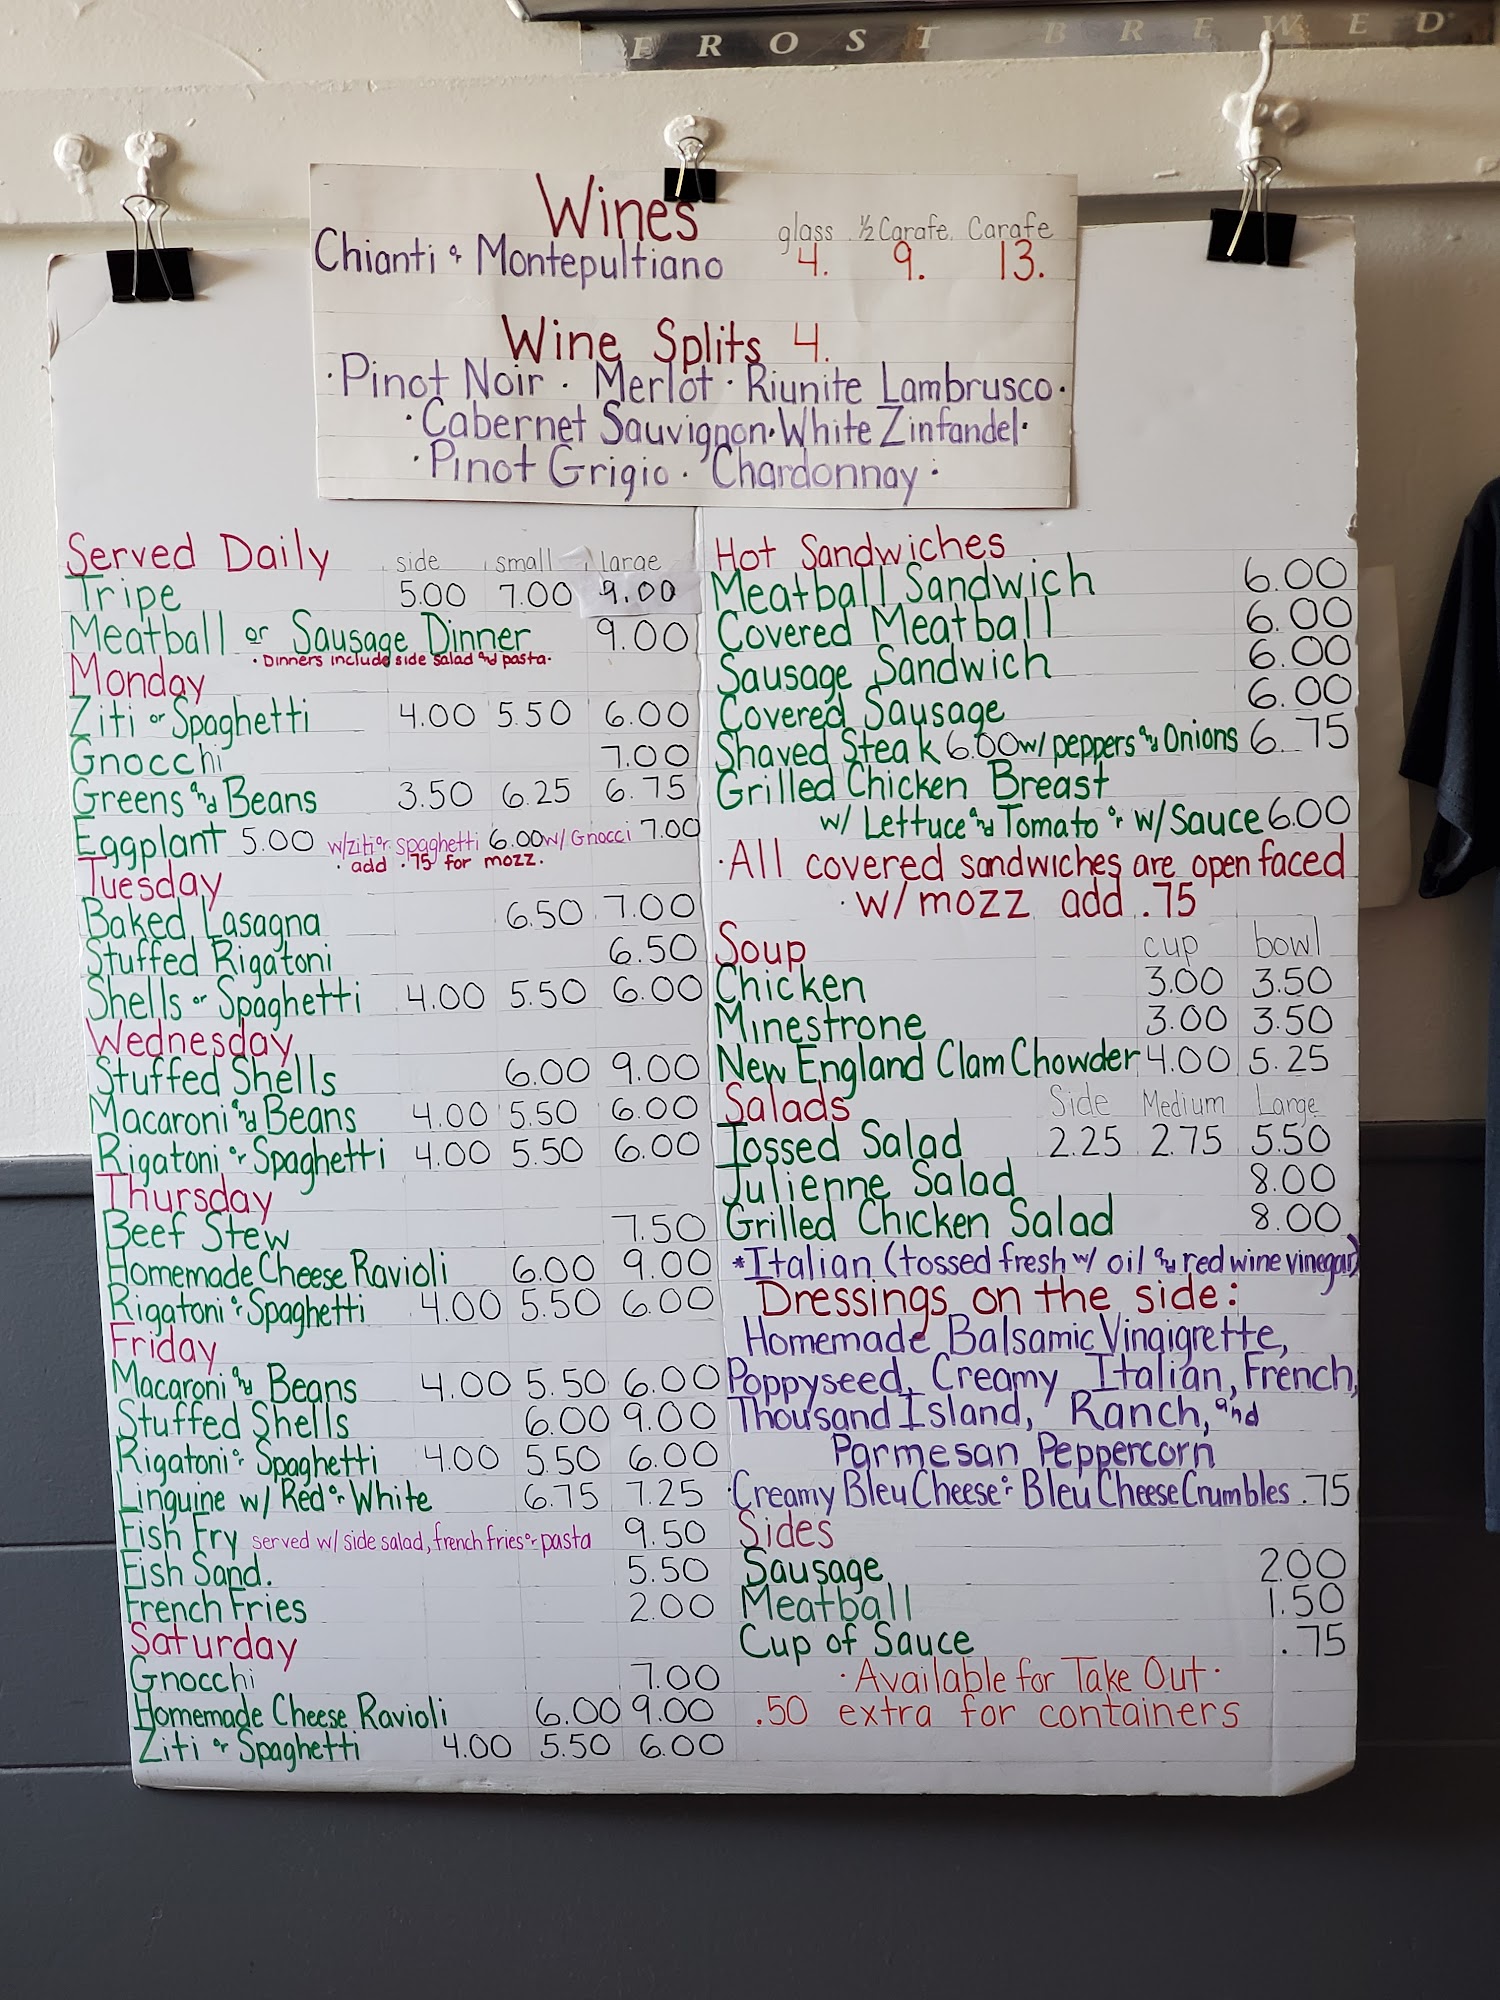 FROST BREWED
Wines
glass ½ Carafe. Carafe
Chianti or Montepultiano 4. 9. 13.
Wine Splits 4.
·Pinot Noir · Merlot · Riunite Lambrusco·
·Cabernet Sauvignon·White Zinfandel·
·Pinot Grigio · Chardonnay ·
Served Daily side small large
Tripe 5.00 7.00 9.00
Meatball or Sausage Dinner 9.00
· Dinners include side salad and pasta·
Monday
Ziti or Spaghetti 4.00 5.50 6.00
Gnocchi 7.00
Greens and Beans 3.50 6.25 6.75
Eggplant 5.00 w/ziti or spaghetti 6.00 w/ Gnocci 7.00
· add .75 for mozz.
Tuesday
Baked Lasagna 6.50 7.00
Stuffed Rigatoni 6.50
Shells or Spaghetti 4.00 5.50 6.00
Wednesday
Stuffed Shells 6.00 9.00
Macaroni and Beans 4.00 5.50 6.00
Rigatoni or Spaghetti 4.00 5.50 6.00
Thursday
Beef Stew 7.50
Homemade Cheese Ravioli 6.00 9.00
Rigatoni or Spaghetti 4.00 5.50 6.00
Friday
Macaroni and Beans 4.00 5.50 6.00
Stuffed Shells 6.00 9.00
Rigatoni or Spaghetti 4.00 5.50 6.00
Linguine w/ Red or White 6.75 7.25
Fish Fry served w/ side salad, french fries or pasta 9.50
Fish Sand. 5.50
French Fries 2.00
Saturday
Gnocchi 7.00
Homemade Cheese Ravioli 6.00 9.00
Ziti or Spaghetti 4.00 5.50 6.00
Hot Sandwiches
Meatball Sandwich 6.00
Covered Meatball 6.00
Sausage Sandwich 6.00
Covered Sausage 6.00
Shaved Steak 6.00 w/ peppers and Onions 6.75
Grilled Chicken Breast
w/ Lettuce and Tomato or w/ Sauce 6.00
·All covered sandwiches are open faced
·w/ mozz add .75
Soup cup bowl
Chicken 3.00 3.50
Minestrone 3.00 3.50
New England Clam Chowder 4.00 5.25
Salads Side Medium Large
Tossed Salad 2.25 2.75 5.50
Julienne Salad 8.00
Grilled Chicken Salad 8.00
*Italian (tossed fresh w/ oil and red wine vinegar)
Dressings on the side:
Homemade Balsamic Vinaigrette,
Poppyseed, Creamy Italian, French,
Thousand Island, Ranch, and
Parmesan Peppercorn
·Creamy Bleu Cheese or Bleu Cheese Crumbles .75
Sides
Sausage 2.00
Meatball 1.50
Cup of Sauce .75
·Available for Take Out·
.50 extra for containers